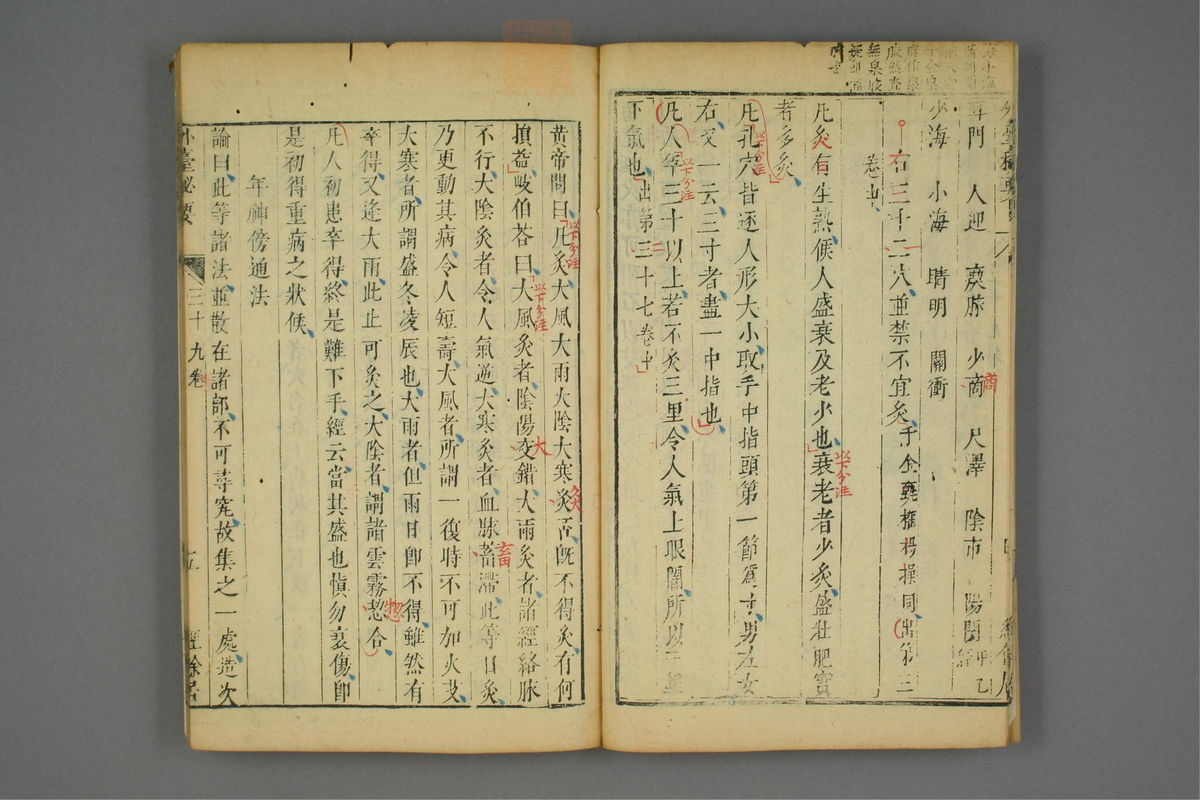 啞門 人迎 少商 尺澤 陰市 陽關 甲乙經
少海 小海 睛明 關衝
右三十二穴並禁不宜灸 千金甄權楊操同出第三
卷中
凡灸有生熟候人盛衰及老少也衰老者少灸盛壯肥實
者多灸
凡孔穴皆逐人形大小取手中指頭第一節為寸男左女
右又一云三寸者盡一中指也
凡人年三十以上若不灸三里令人氣上眼闇所以三里
下氣也出第二十七卷中
黄帝問曰凡灸大風大雨大陰大寒灸否旣不得灸有何
損益岐伯荅曰大風灸者陰陽交錯大雨灸者諸經絡脉
不行大陰灸者令人氣逆大寒灸者血脉蓄滯此等日灸
乃更動其病令人短壽大風者所謂一復時不可加火艾
大寒者所謂盛冬凌辰也大雨者但雨日卽不得雖然有
卒得又逢大雨此止可灸之大陰者謂諸雲霧惣合
凡人初患卒得終是難下手經云當其盛也愼勿衰傷卽
是初得重病之狀候
年神傍通法
論曰此等諸法並散在諸部不可尋究故集之一處造次
外臺秘要 三十九卷 經餘居
以下分注
以下分注
以下分注
以下分注
以下分注
商
大
灸
畜
惣